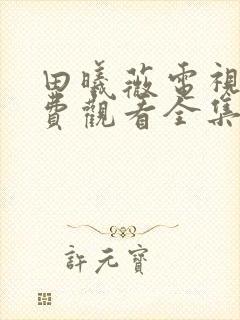 田曦薇電視
費觀看全集
許元寶